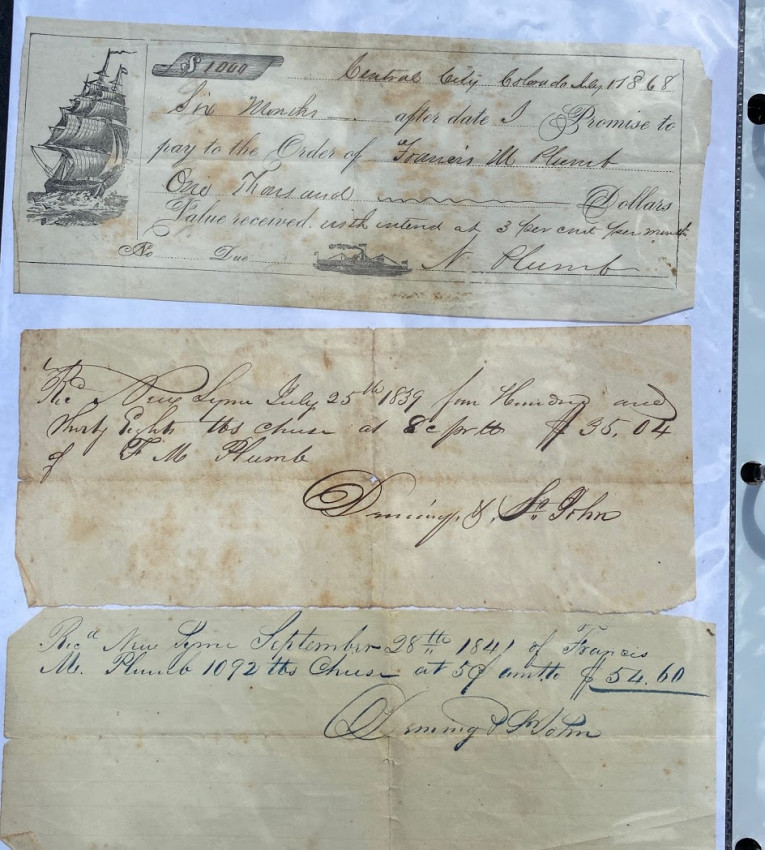 $ 1000 Central City Colorado July 1 1868
Six Months after date I Promise to
pay to the Order of Francis M Plumb
One Thousand Dollars
Value received with interest at 3 per cent per month
No Due N Plumb
Recd New Lyme July 25th 1839 four Hundred and
thirty Eight lbs cheese at 8c pr lb $35,04
of F M Plumb
Deming & St John
Recd New Lyme September 28th 1841 of Francis
M. Plumb 1092 lbs Cheese at 5¢ amt to $54.60
Deming & St John